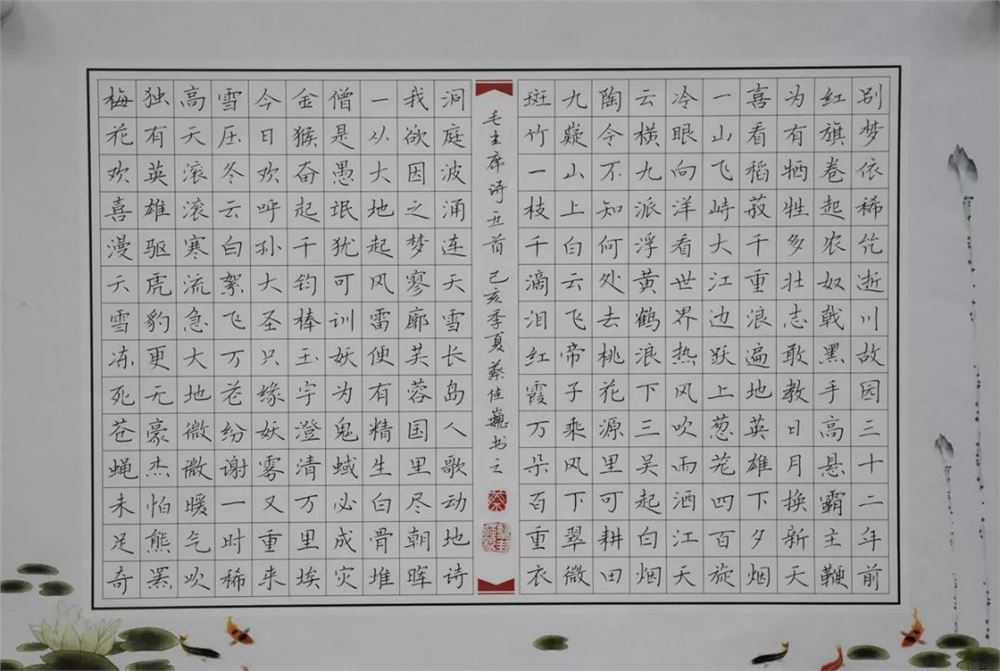 别梦依稀咒逝川故园三十二年前
红旗卷起农奴戟黑手高悬霸主鞭
为有牺牲多壮志敢教日月换新天
喜看稻菽千重浪遍地英雄下夕烟
一山飞峙大江边跃上葱茏四百旋
冷眼向洋看世界热风吹雨洒江天
云横九派浮黄鹤浪下三吴起白烟
陶令不知何处去桃花源里可耕田
九疑山上白云飞帝子乘风下翠微
斑竹一枝千滴泪红霞万朵百重衣
毛主席诗五首 己亥季夏蔡佳巍书之
洞庭波涌连天雪长岛人歌动地诗
我欲因之梦寥廓芙蓉国里尽朝晖
一从大地起风雷便有精生白骨堆
僧是愚氓犹可训妖为鬼蜮必成灾
金猴奋起千钧棒玉宇澄清万里埃
今日欢呼孙大圣只缘妖雾又重来
雪压冬云白絮飞万花纷谢一时稀
高天滚滚寒流急大地微微暖气吹
独有英雄驱虎豹更无豪杰怕熊罴
梅花欢喜漫天雪冻死苍蝇未足奇